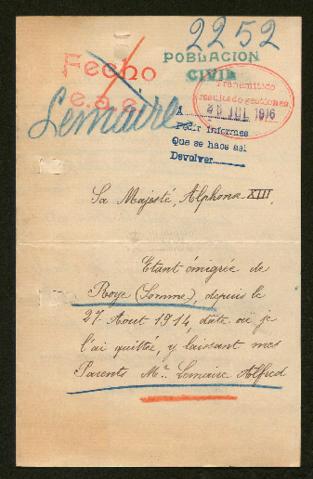 2252
Fecho
e.a.s.
POBLACION
CIVIL
Lemaire
Transmitido
resultado gestiones
A 25 JUL 1916
Pedir informes
Que se haga asi
Devolver
Sa Majesté, Alphonse XIII,
Etant émigrée de
Roye (Somme), depuis le
27 Aout 1914, date où je
l'ai quittée, y laissant mes
Parents Mr. Lemaire Alfred